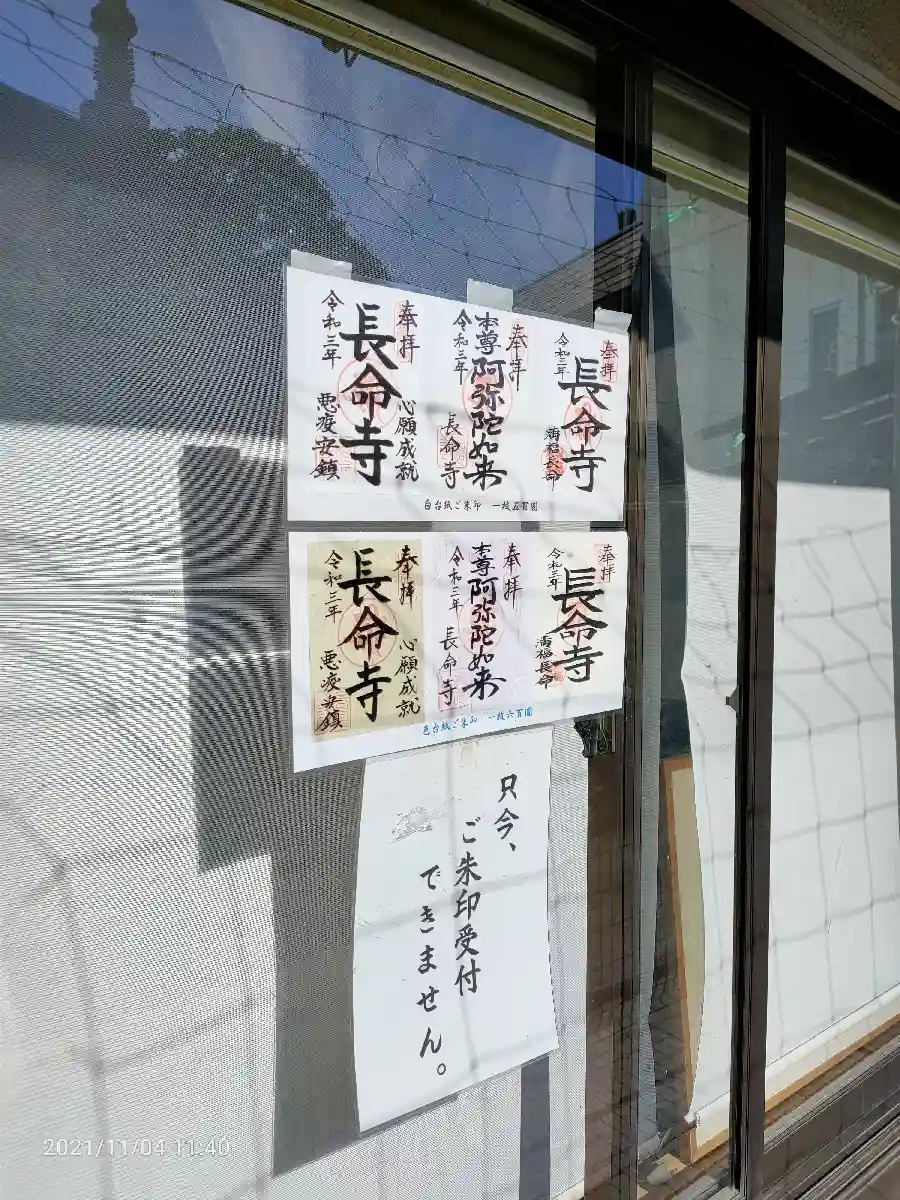 奉拝
長命寺
満福長命
令和三年
奉拝
本尊阿弥陀如来
令和三年
長命寺
奉拝
心願成就
長命寺
令和三年
悪疫安鎮
白台紙ご朱印 一枚五百圓
奉拝
長命寺
満福長命
令和三年
奉拝
本尊阿弥陀如来
令和三年
長命寺
奉拝
心願成就
長命寺
令和三年
悪疫安鎮
色台紙ご朱印 一枚六百圓
只今、
ご朱印受付
できません。
2021/11/04 11:40